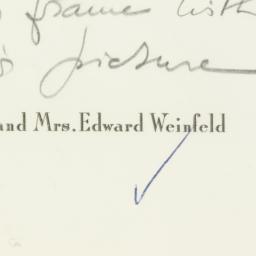 frame with
picture
and Mrs. Edward Weinfeld